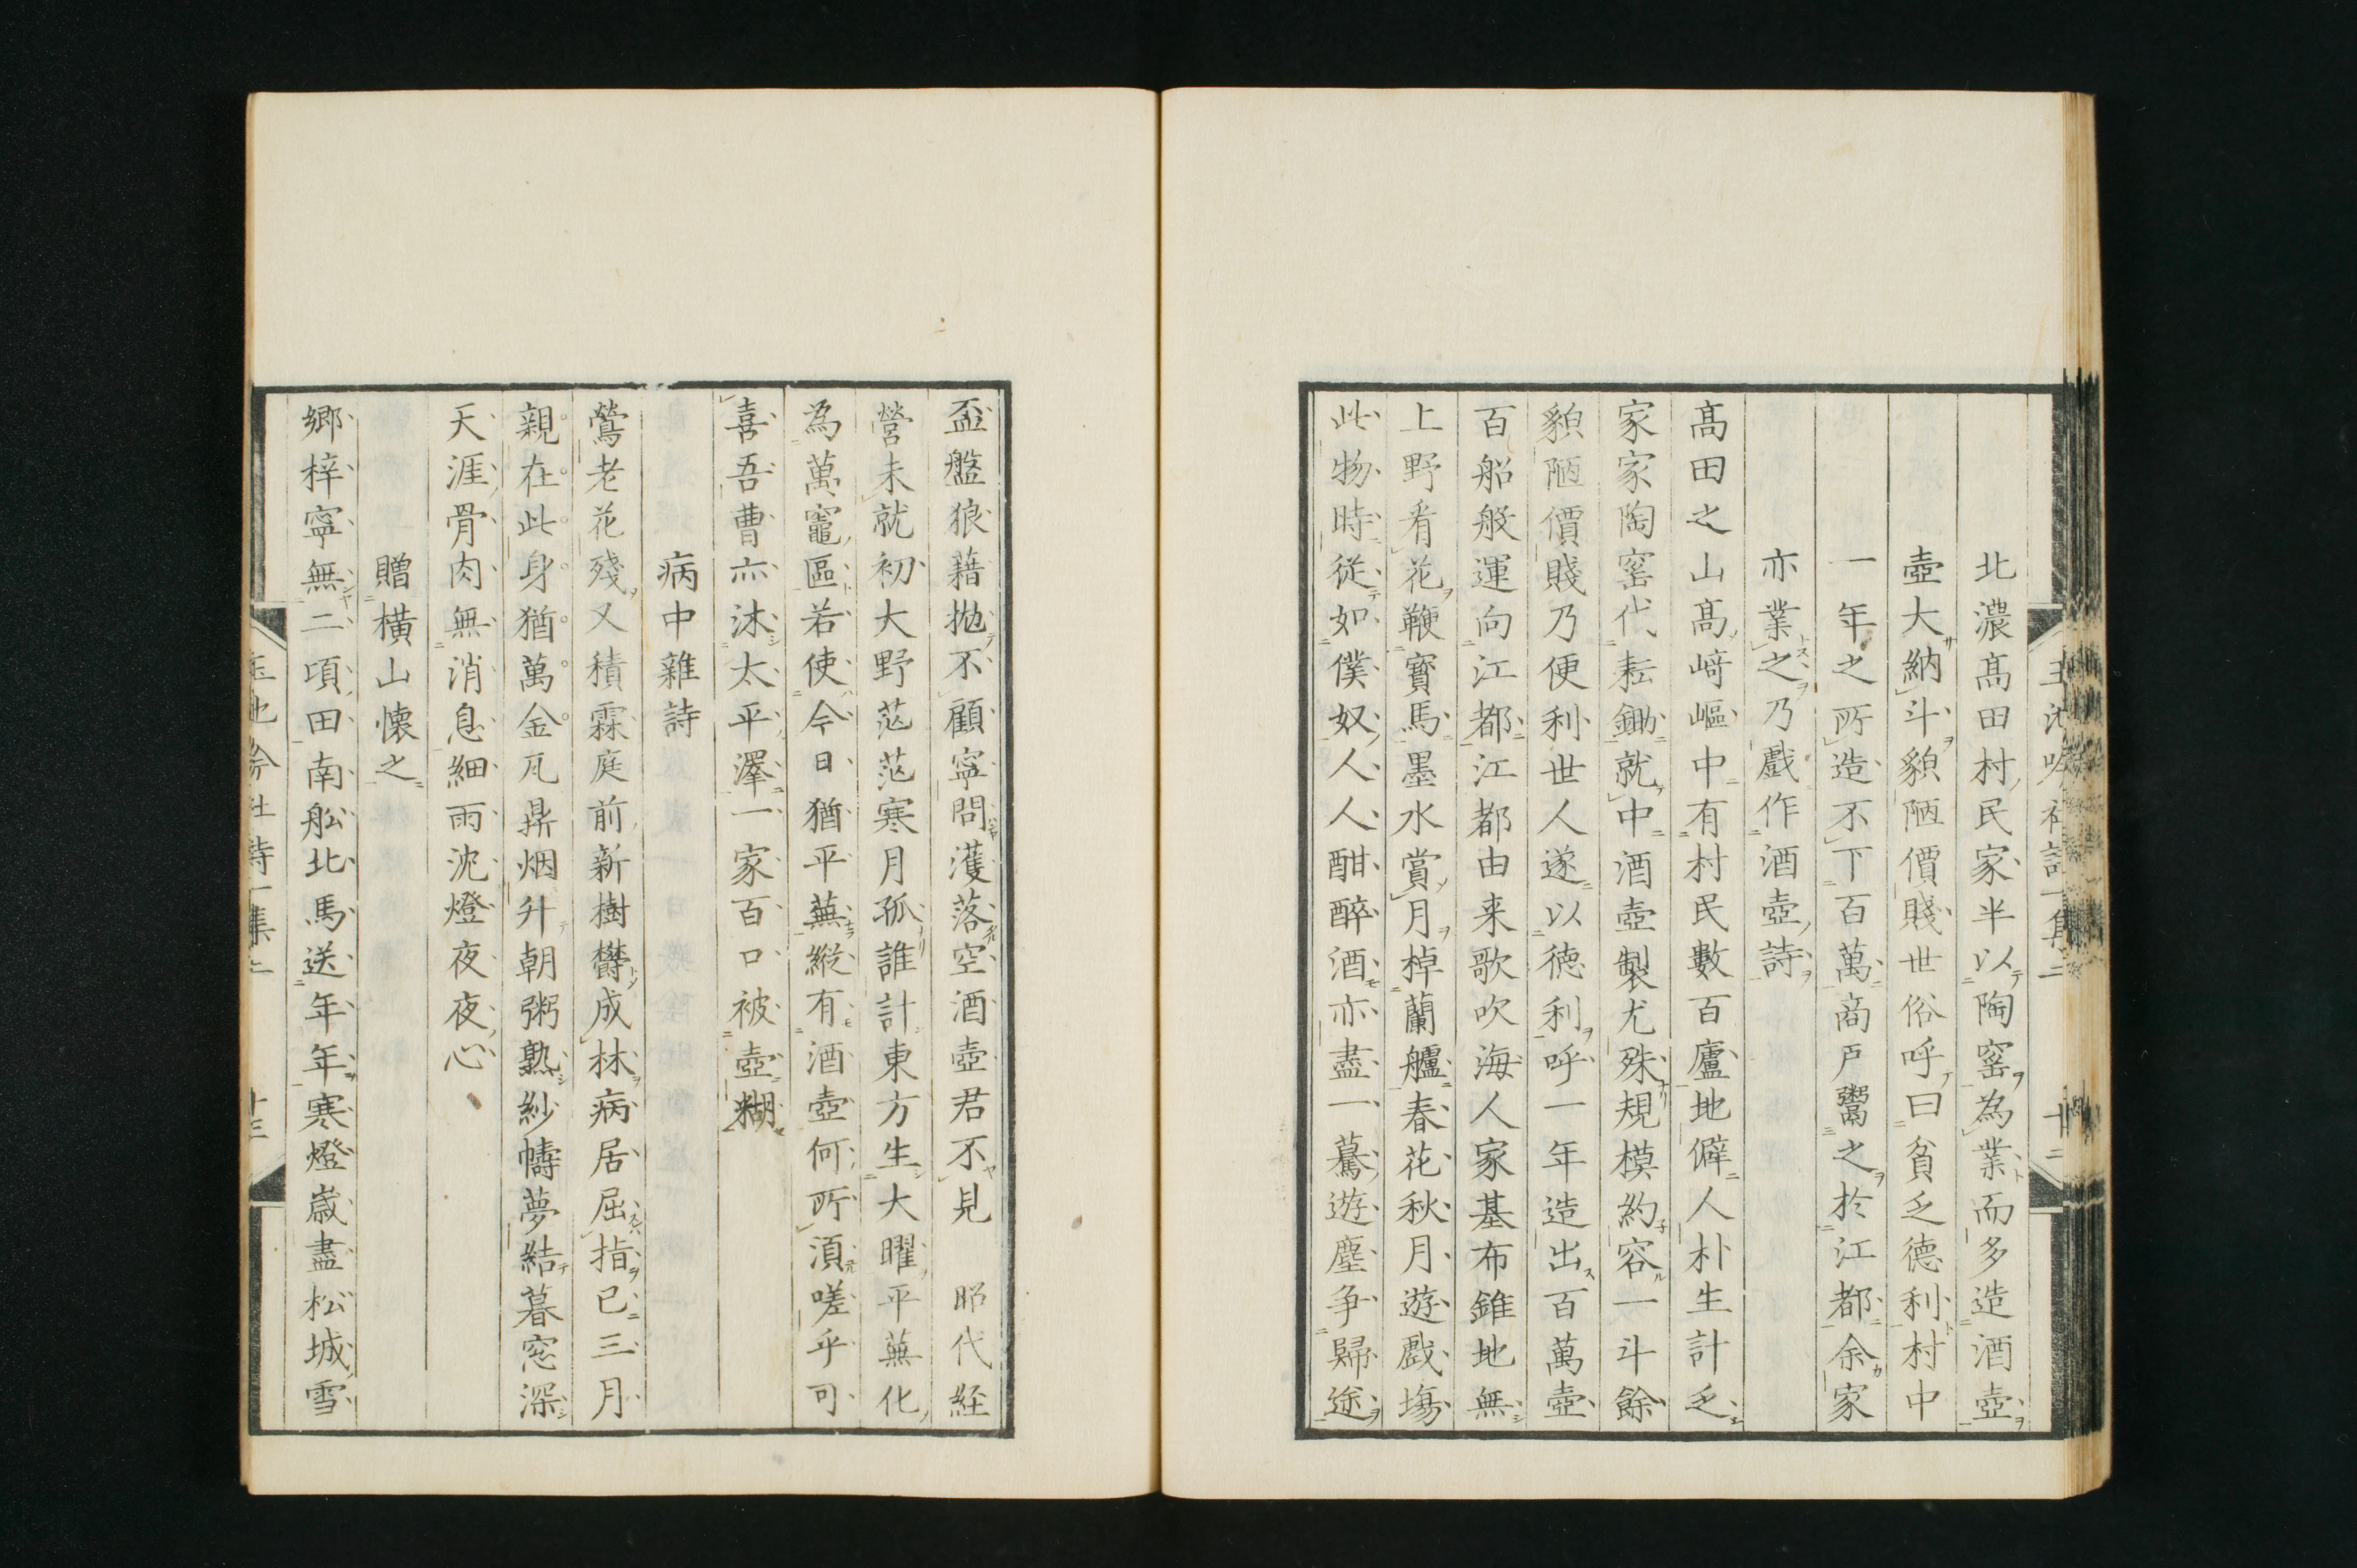 北濃髙田村民家半以陶窯為業而多造酒壺
壺大納斗貌陋價賤世俗呼曰貧乏德利村中
一年之所造不下百萬商戸鬻之於江都余家
亦業之乃戲作酒壺詩
髙田之山髙﨑嶇中有村民數百廬地僻人朴生計乏
家家陶窯代耘鋤就中酒壺製尤殊規模約容一斗餘
貌陋價賤乃便利世人遂以德利呼一年造出百萬壺
百船般運向江都江都由来歌吹海人家基布錐地無
上野看花鞭寳馬墨水賞月棹蘭艫春花秋月遊戲塲
此物時從如僕奴人人酣醉酒亦盡一驀遊塵争歸途
盃盤狼藉抛不顧寧問濩落空酒壺君不見　昭代経
營未就初大野茫茫寒月孤誰計東方生大曜平蕪化
為萬竈區若使今日猶平蕪縱有酒壺何所湏嗟乎可
喜吾曹亦沐太平澤一家百口被壺糊
病中雜詩
鶯老花殘又積霖庭前新樹欝成林病居屈指已三月
親在此身猶萬金瓦鼎烟升朝粥熟紗幬夢結暮窓深
天涯骨肉無消息細雨沈燈夜夜心
贈橫山懷之
郷梓寧無二頃田南舩北馬送年年寒燈歳盡松城雪
詩一集二　十三